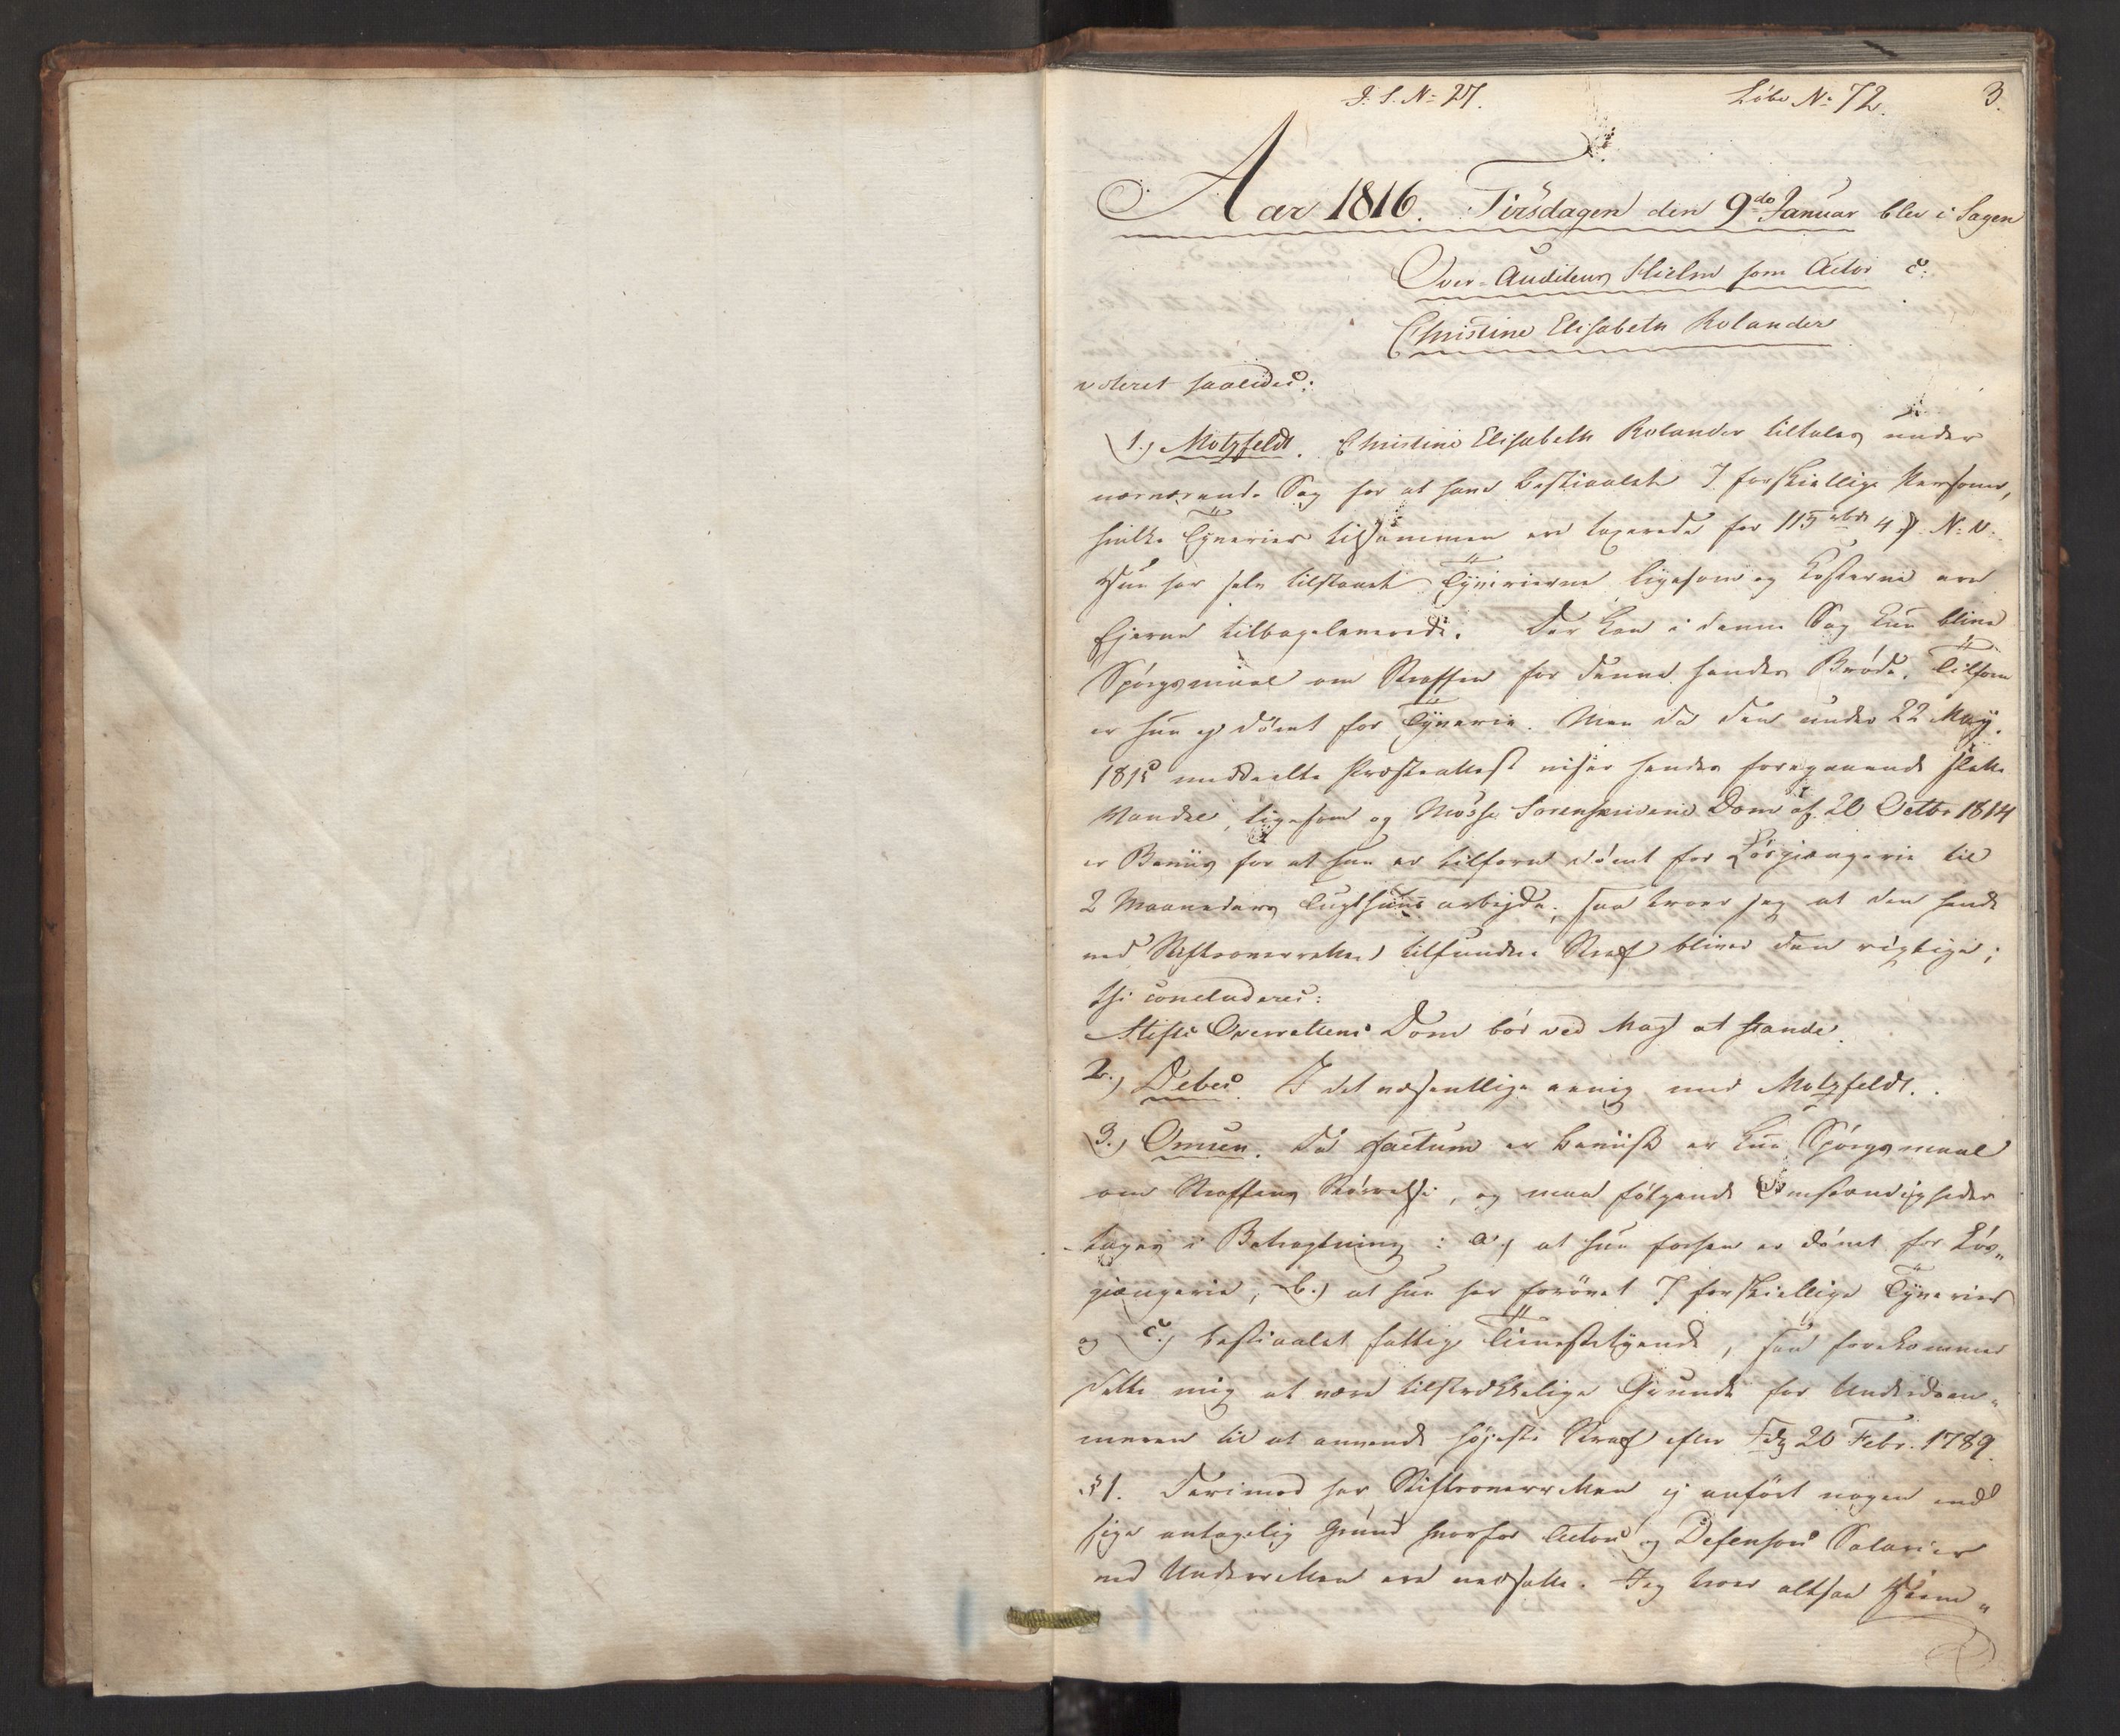 J. S. No 27. Löbe No 72. 3.
Aar 1816. Tirsdagen den 9de Januar blev i Sagen
Over-Auditeur Hielm som Actor c:
Christine Elisabeth Rolander
voteret saaledes:
1.) Motzfeldt. Christine Elisabeth Rolander tiltales under
nærværende Sag for at have bestiaalet 7 forskiellige Personer,
hvilke Tyverier tilsammen ere taxerede for 115 rbd 4 s N. V.
Hun har selv tilstaaet Tyverierne ligesom og Kosterne ere
Ejerne tilbageleverede. Der kan i denne Sag kun blive
Spörgsmaal om Straffen for denne hendes Bröde. Tilforn
er hun ej dömt for Tyverie. Men da den under 22 May
1815 meddeelte Præsteattest viser hendes foregaaende slette
Vandel, ligesom og Mosse Sorenskriveries Dom af 20 Octbr 1814
er Beviis for at hun er tilforn dömt for Lösgiængerie til
2 Maaneders Tugthuus arbejde, saa troer jeg at den hende
ved Stiftsoverretten tilfundne Straf bliver den rigtige;
thi concluderes:
Stifts Overrettens Dom bör ved Magt at stande.
2.) Debes. I det væsentlige eenig med Motzfeldt.
3.) Omsen. Da factum er beviist er kun Spörgsmaal
om Straffens Störrelse, og maa fölgende Omstændigheder
tages i Betragtning: a.) at hun forhen er dömt for Lös„
giængerie, b.) at hun har forövet 7 forskiellige Tyverier
og c.) bestiaalet fattige Tienestetyende, saa forekommer
dette mig at være tilstrækkelige Grunde for Underdom„
meren til at anvende höjeste Straf efter Fdg 20 Febr. 1789.
§ 1. Derimod har Stiftsoverretten ej anfört nogen end
sige antagelig Grund hvorfor Actors og Defensors Salarier
ved Underretten ere nedsatte. Jeg troer altsaa Hiem„